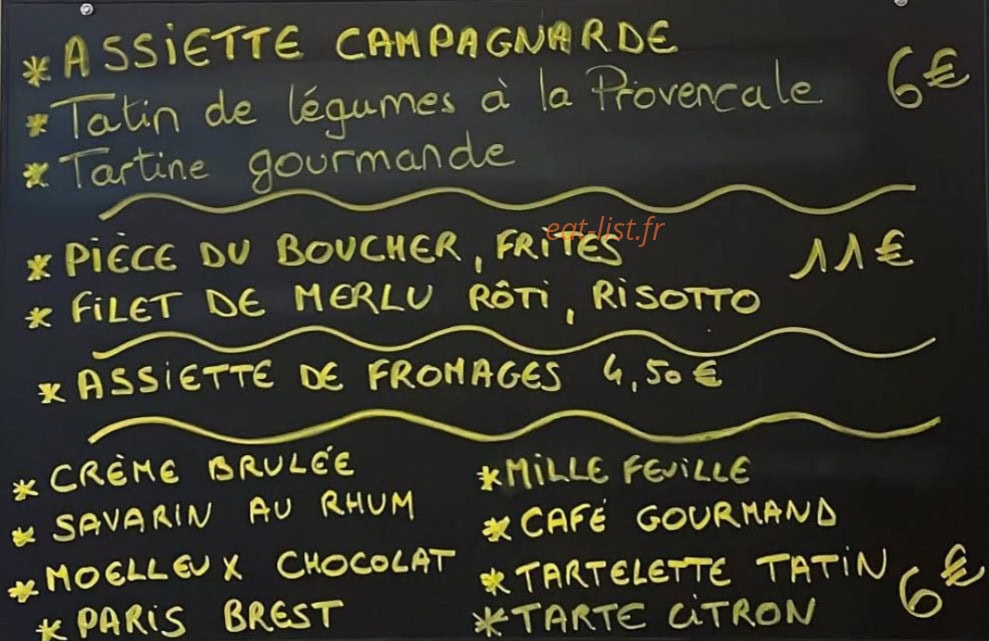 * ASSIETTE CAMPAGNARDE
* Tatin de légumes à la Provençale 6€
* Tartine gourmande
eat-list.fr
* PIÈCE DU BOUCHER, FRITES 11€
* FILET DE MERLU RÔTI, RISOTTO
* ASSIETTE DE FROMAGES 4,50€
* CRÈME BRULÉE
* SAVARIN AU RHUM
* MOELLEUX CHOCOLAT
* PARIS BREST
* MILLE FEUILLE
* CAFÉ GOURMAND
* TARTELETTE TATIN 6€
* TARTE CITRON